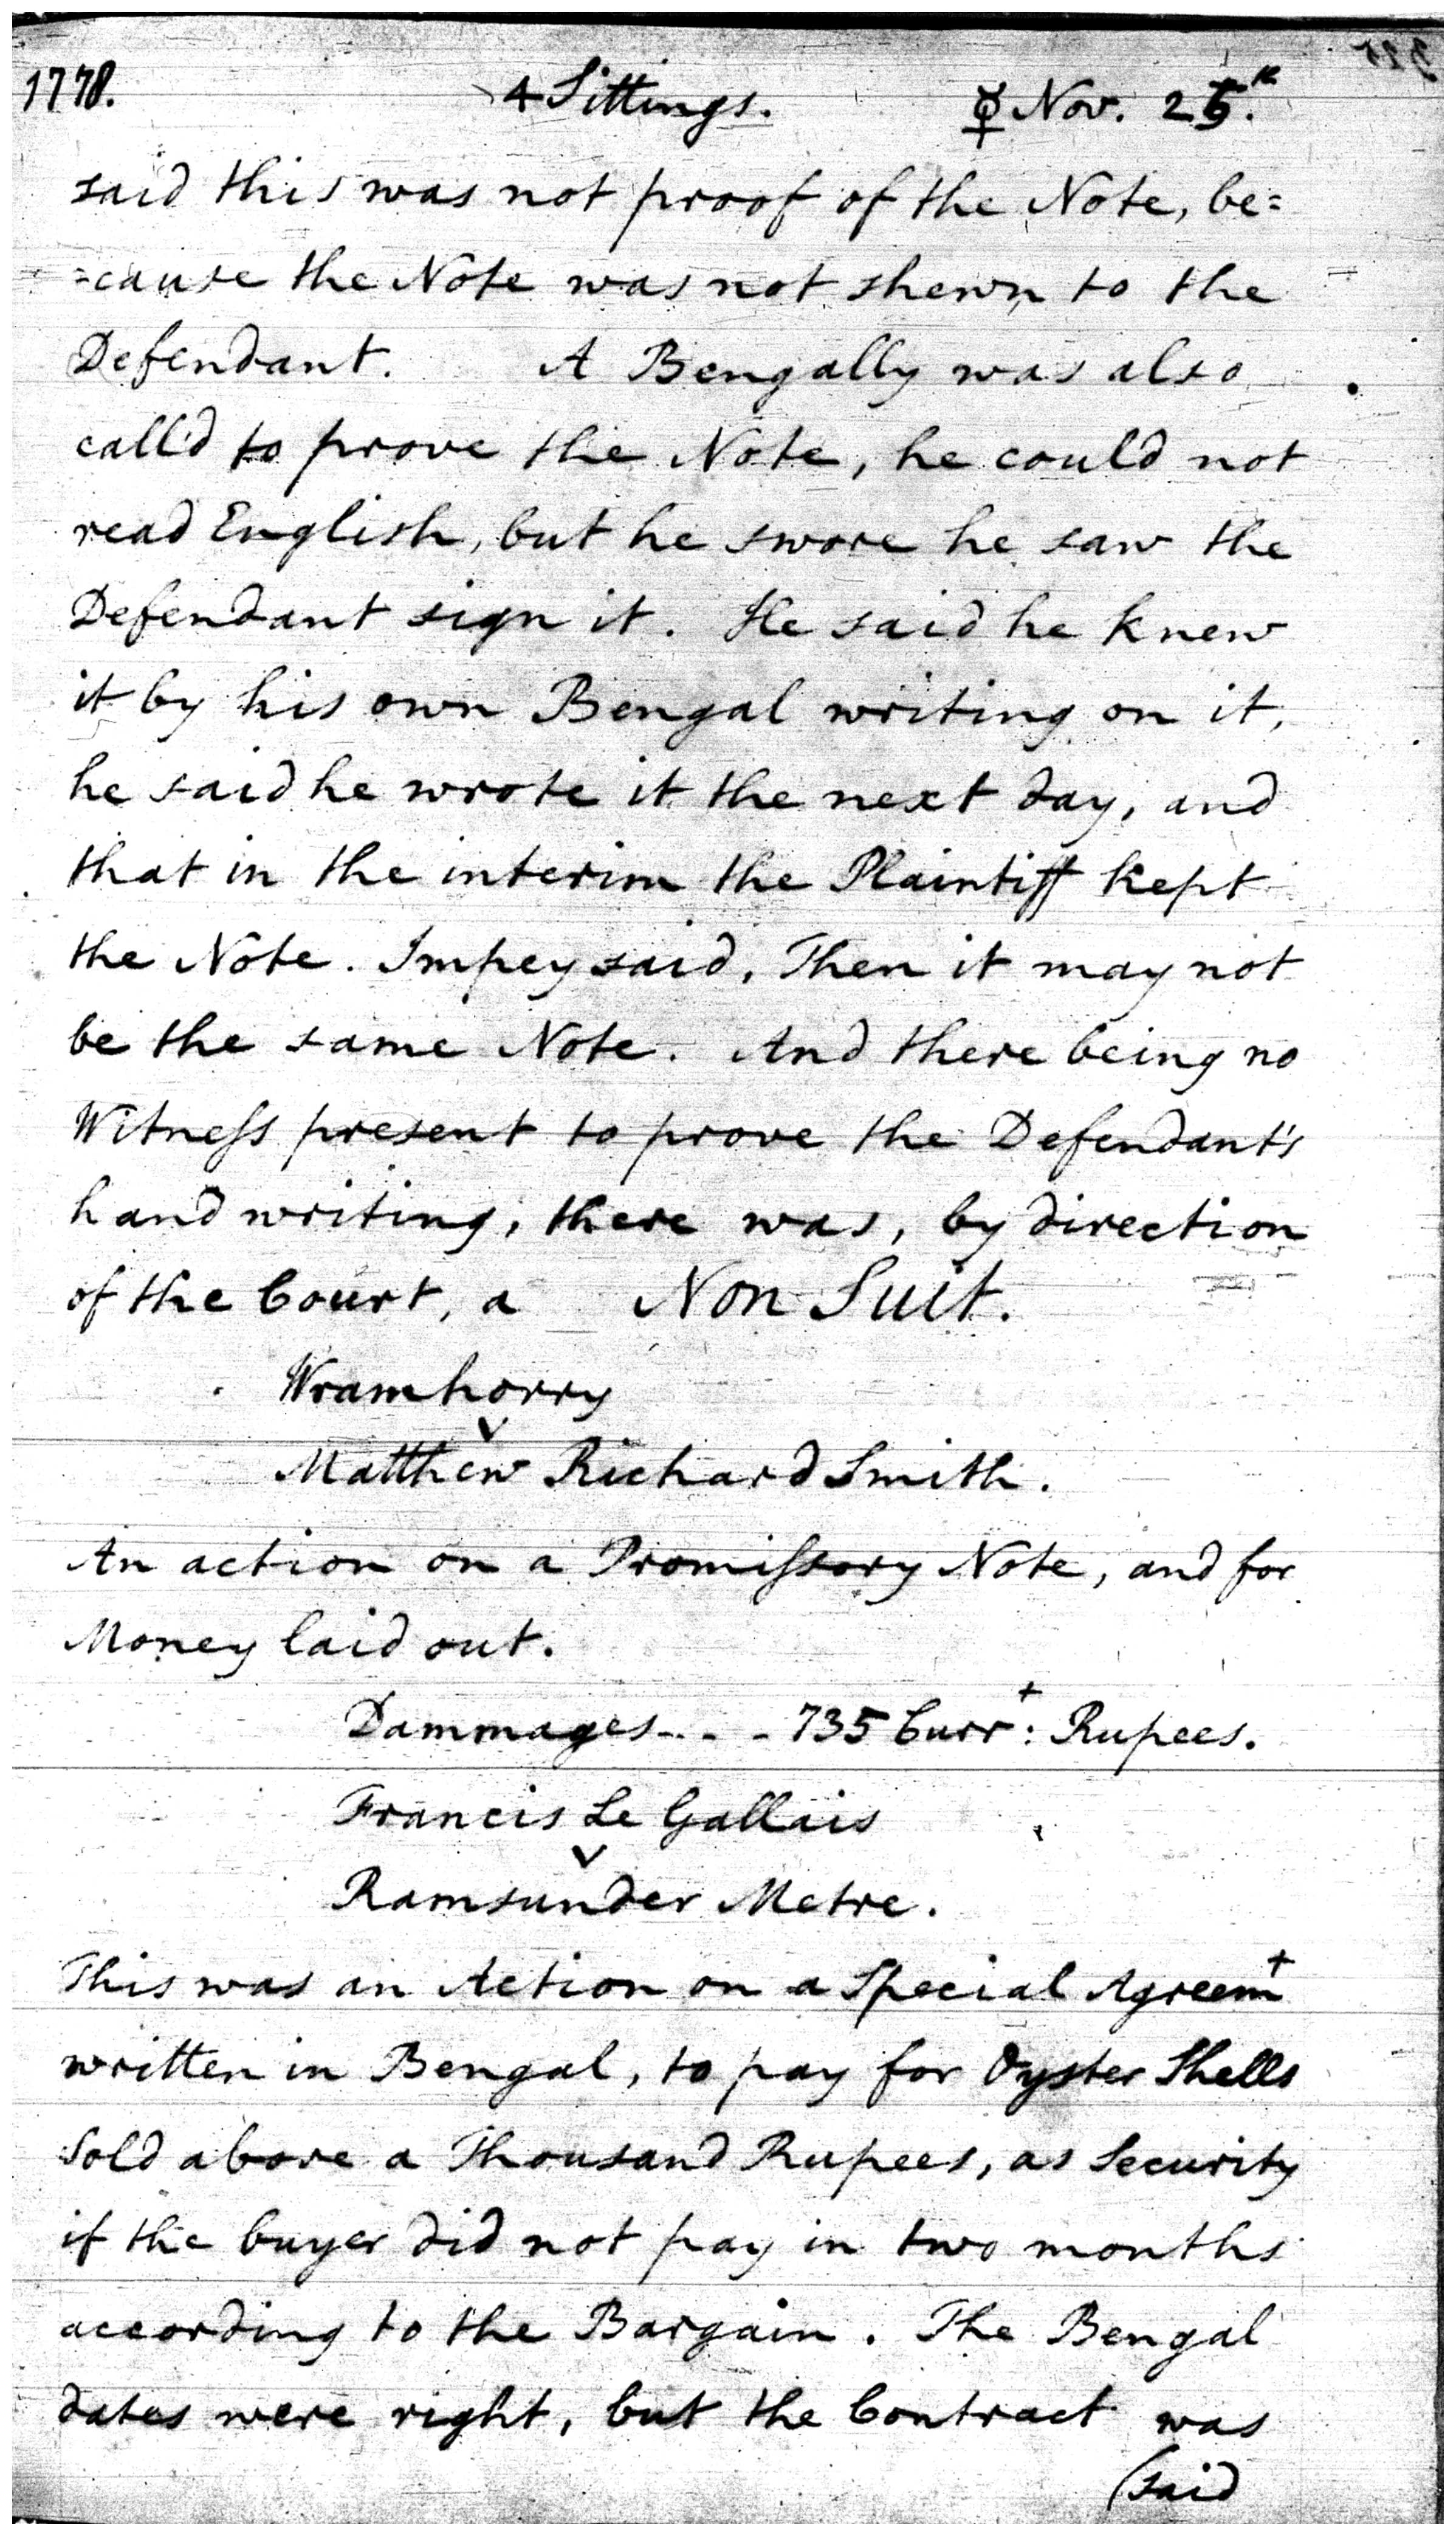 1778. 4 Sittings. ☿ Nov. 25.th
said this was not proof of the Note, be=
=cause the Note was not shewn to the
Defendant. A Bengally was also
call'd to prove the Note, he could not
read English, but he swore he saw the
Defendant sign it. He said he knew
it by his own Bengal writing on it,
he said he wrote it the next day, and
that in the interim the Plaintiff kept
the Note. Impey said, Then it may not
be the same Note. And there being no
Witneſs present to prove the Defendant's
hand writing, there was, by direction
of the Court, a Non Suit.
Wramhorry
v
Matthew Richard Smith.
An action on a Promiſsory Note, and for
Money laid out.
Dammages - - - 735 Curr.t: Rupees.
Francis Le Gallais
v
Ramsunder Metre.
This was an Action on a Special Agreemt
written in Bengal, to pay for Oyster Shells
Sold above a Thousand Rupees, as Security
if the buyer did not pay in two months
according to the Bargain. The Bengal
dates were right, but the Contract was
(said